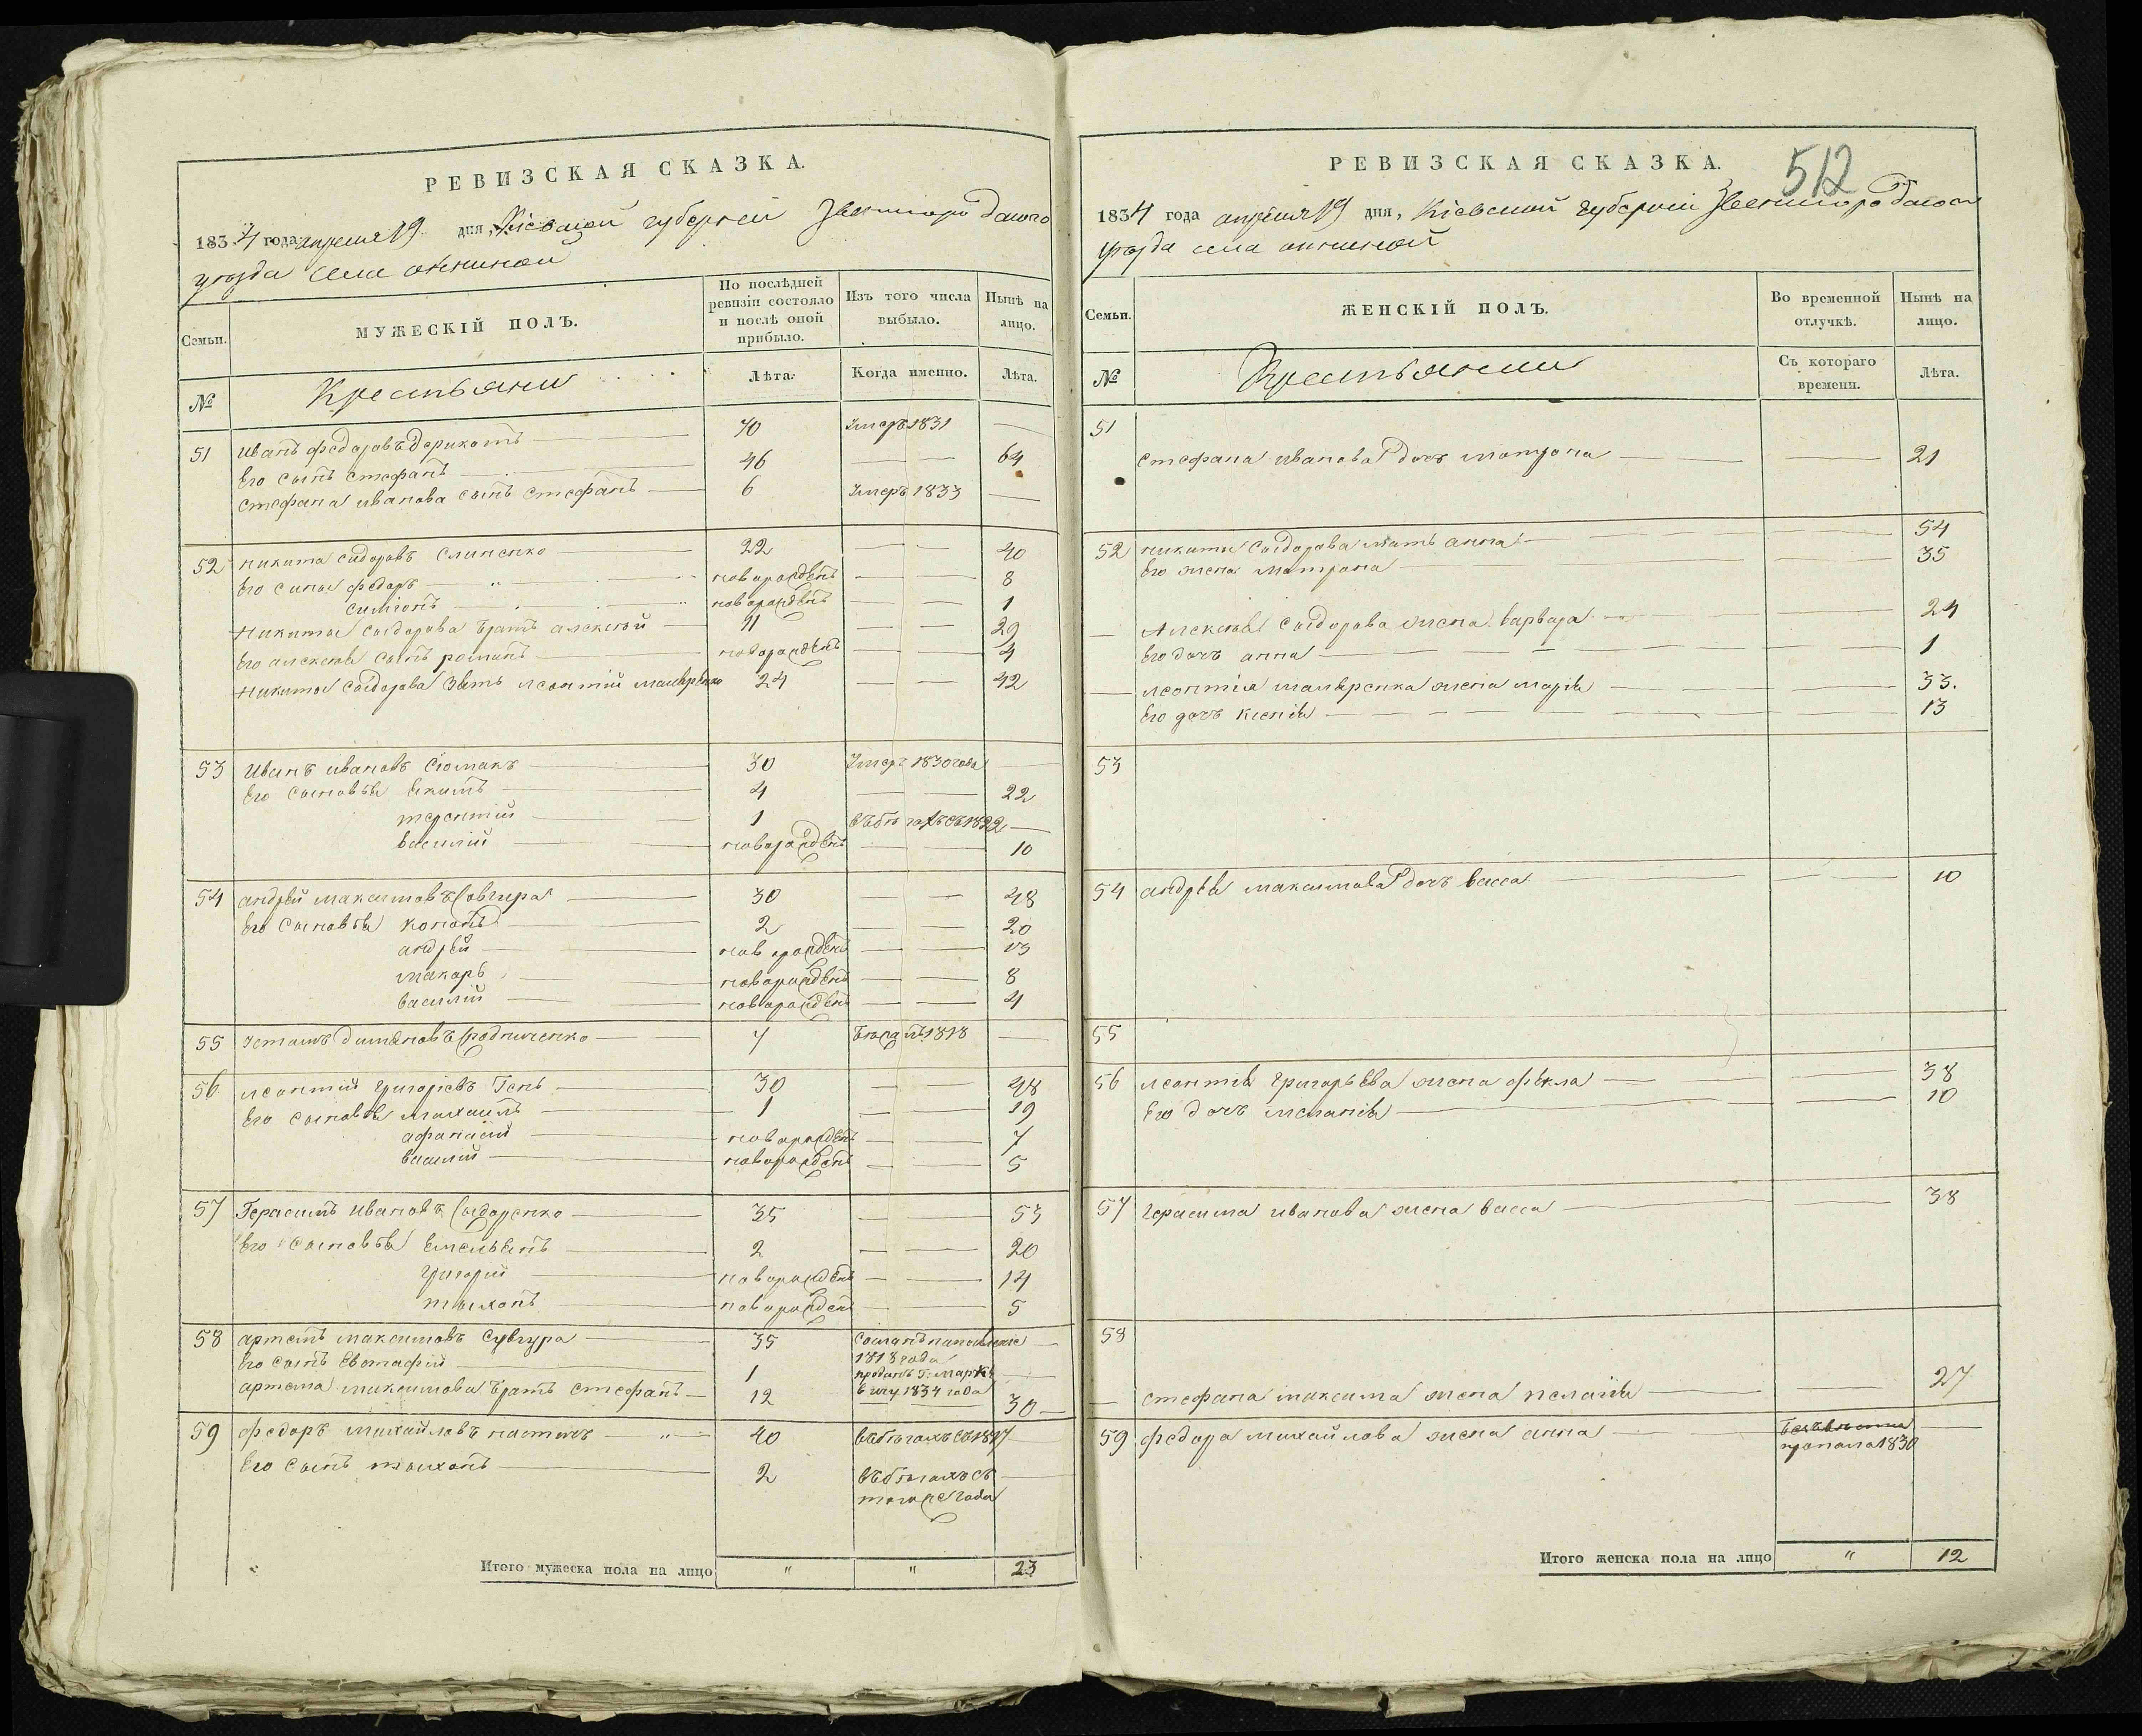 РЕВИЗСКАЯ СКАЗКА.
1834 года апреля 19 дня, Кіевской губерніи Звенигородского
уезда села
Семьи.
МУЖЕСКІЙ ПОЛЪ.
По послѣдней ревизіи состояло и послѣ оной прибыло.
Изъ того числа выбыло.
Нынѣ на лицо.
№
Крестьяни
Лѣта.
Когда именно.
Лѣта.
51 Иванъ федоровъ 70 Умеръ 1831
Его сынъ стефанъ 46 64
стефана иванова сынъ стефанъ 6 Умеръ 1833
52 никита сидоровъ 22 40
Его сины федоръ новорожденъ 8
симіонъ новорожденъ 1
Никиты сыдорова братъ алексей 11 29
Его алексея сынъ романъ новорожденъ 4
Никиты сыдорова зять леонтий 24 42
53 Иванъ ивановъ сюмакъ 30 Умеръ 1830 года
Его сыновья екимъ 4 22
терентий 1 въ бегахъ съ 1822
василий новорожденъ 10
54 андрей максимовъ 30 48
Его сыновья кононъ 2 20
андрей новорожденъ 13
макаръ новорожденъ 8
василий новорожденъ 4
55 7 1818
56 леонтий григоріевъ Генъ 30 48
Его сыновья михаилъ 1 19
афанасий новорожденъ 7
василий новорожденъ 5
57 Герасимъ ивановъ сыдоренко 35 53
Его сыновья емельянъ 2 20
григорий новорожденъ 14
тыхонъ новорожденъ 5
58 артемъ максимовъ сувгура 35 сосланъ на поселеніе
1818 года
Его сынъ 1 проданъ
артема максимова братъ стефанъ 12 1834 года 30
59 федоръ михайловъ 40 въ бегахъ съ 1817
Его сынъ тыхонъ 2 въ бегахъ съ
того же года
Итого мужеска пола на лицо " " 23
512
РЕВИЗСКАЯ СКАЗКА.
1834 года апреля 19 дня, Кіевской губерніи Звенигородского
уезда села
Семьи.
ЖЕНСКІЙ ПОЛЪ.
Во временной отлучкѣ.
Нынѣ на лицо.
№
Крестьянки
Съ котораго времени.
Лѣта.
51
стефана иванова дочь матрона 21
52 никиты сыдорова мать анна 54
Его жена матрона 35
Алексея сыдорова жена варвара 24
Его дочъ анна 1
леонтія жена марія 33.
Его дочъ ксенія 13
53
54 андрея максимова дочъ васса 10
55
56 леонтія григорьева жена фекла 38
Его дочъ меланія 10
57 герасима иванова жена васса 38
58
стефана максима жена пелагія 27
59 федора михайлова жена анна
пропала 1830
Итого женска пола на лицо " 12